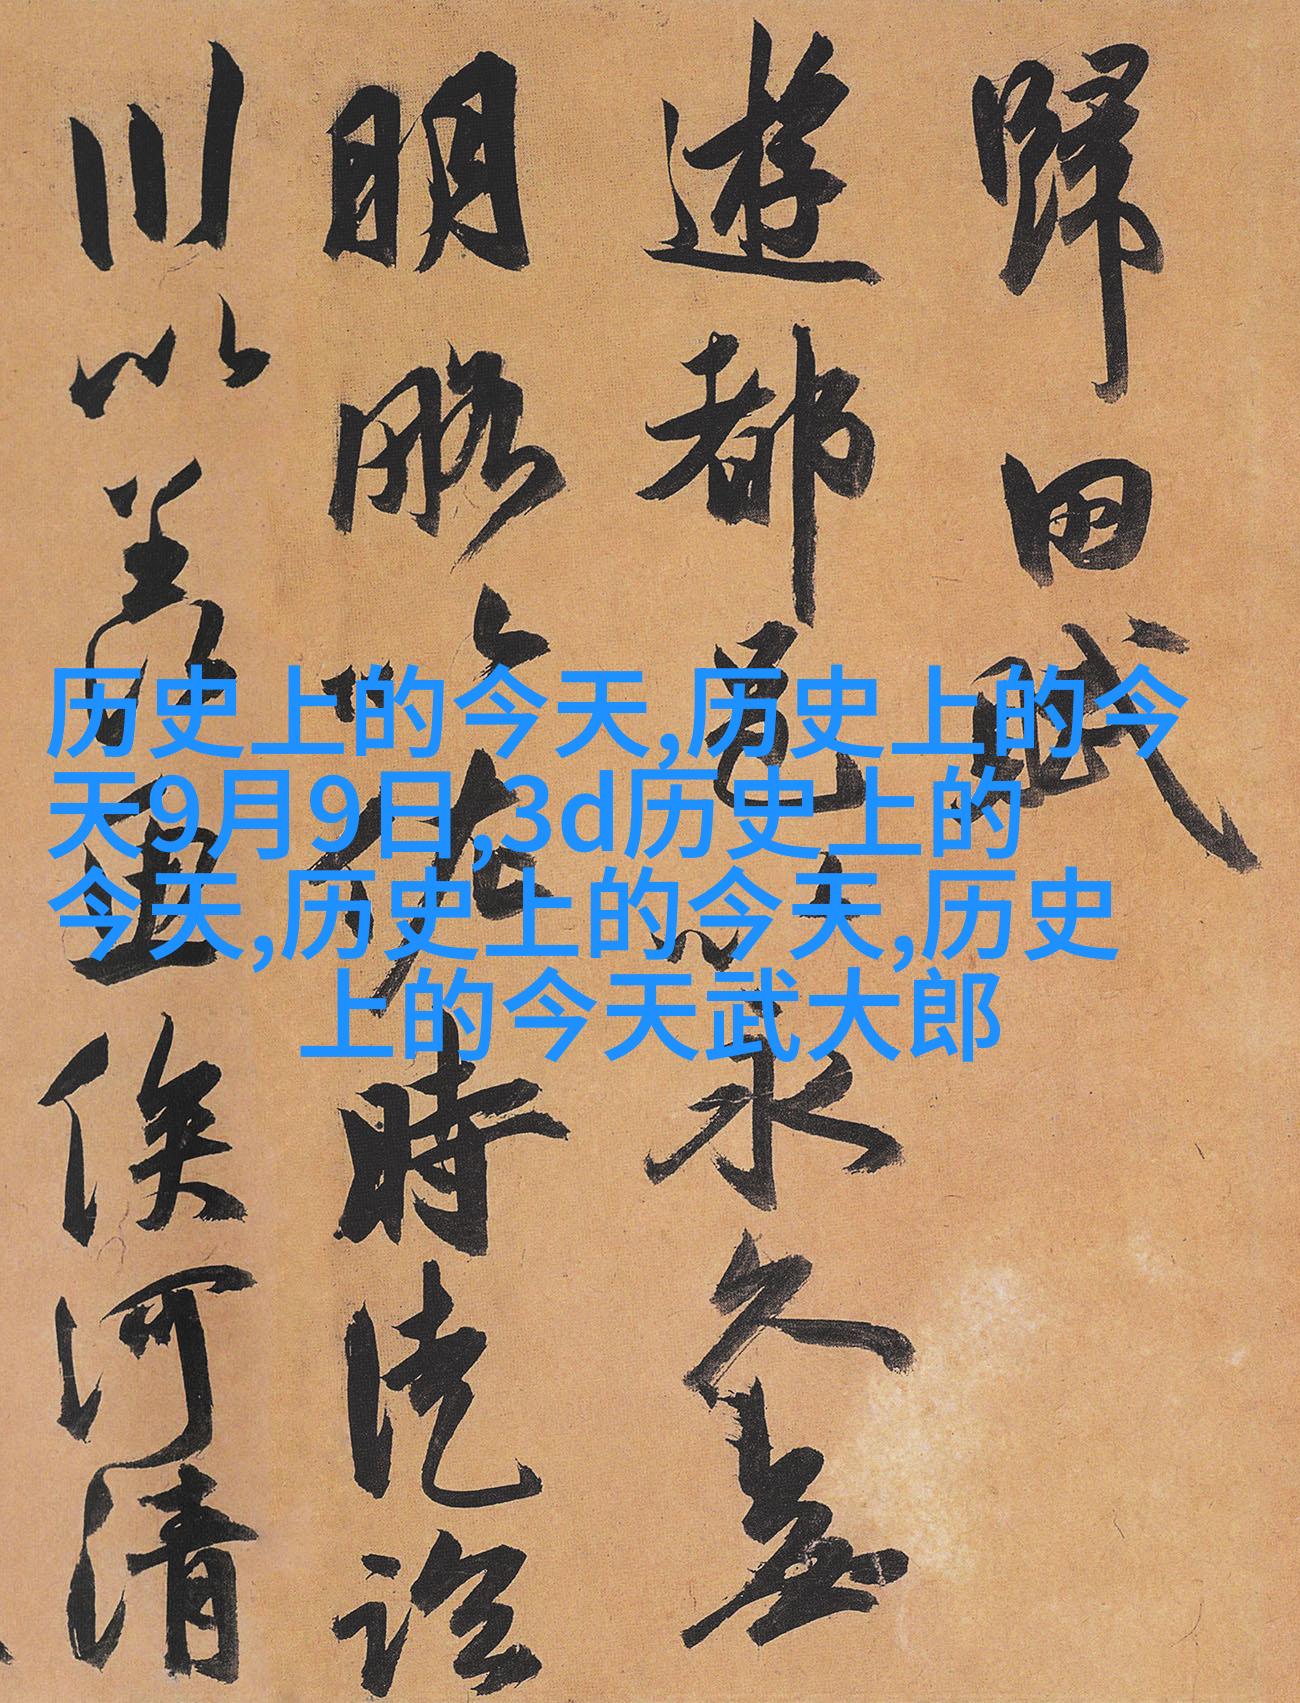 歸田賦
遊都邑以永久無
明略以佐時徒臨
川以羨魚俟河清
历史上的今天,历史上的今
天9月9日,3d历史上的
今天,历史上的今天,历史
上的今天武大郎